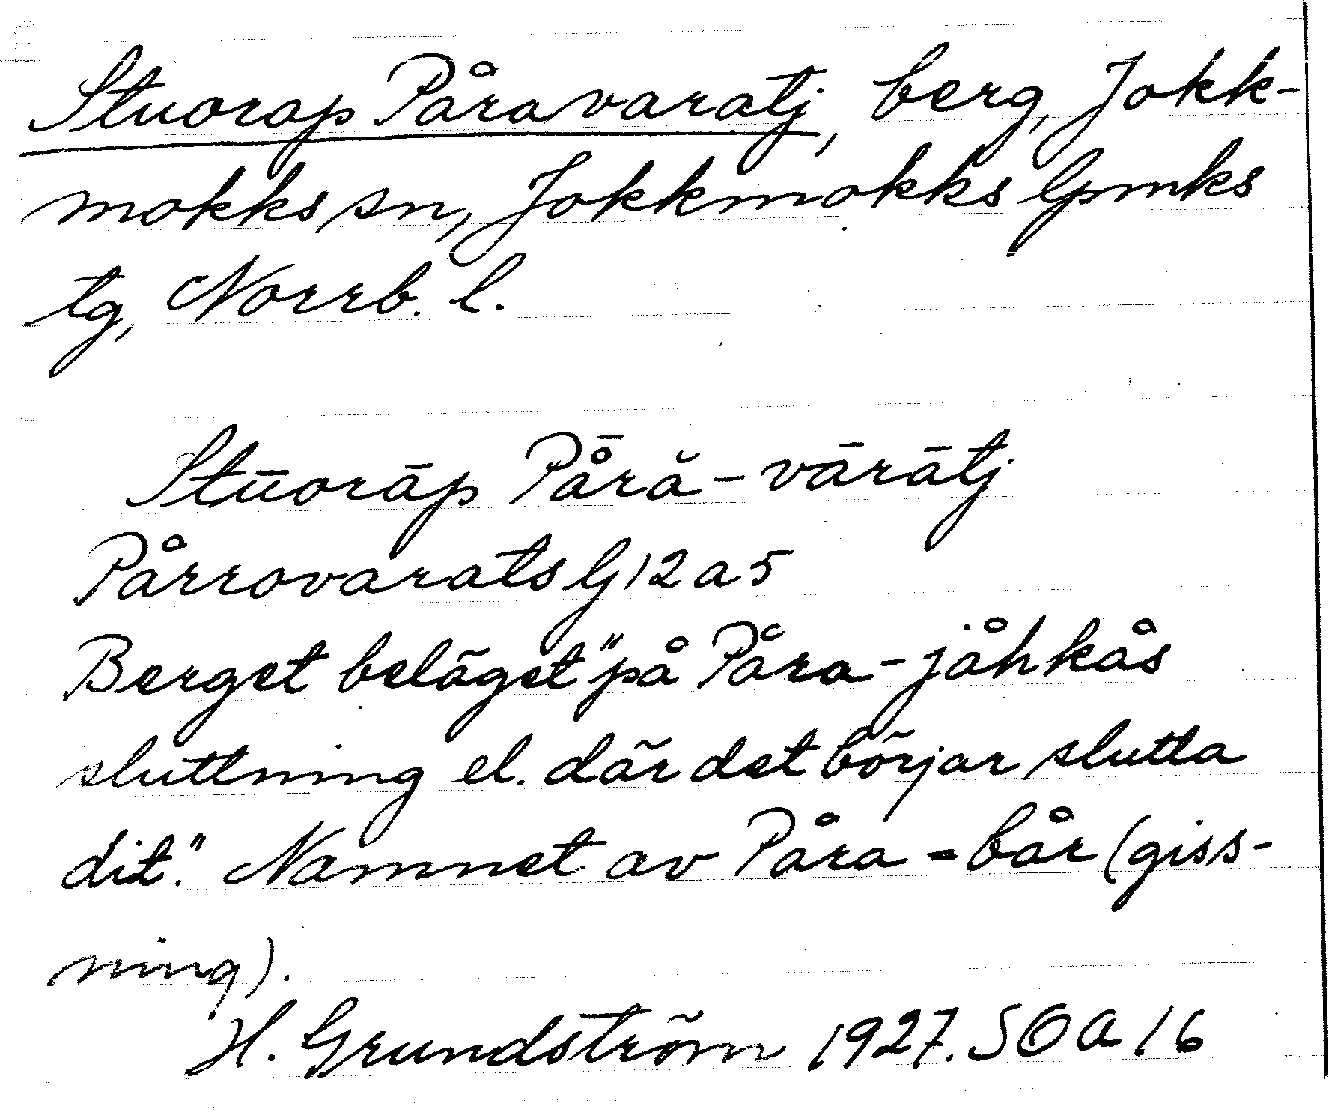 Stuorap Påravaratj, berg, Jokk-
mokks sn, Jokkmokks lpmks
tg, Norrb. l.
Stūorāp Pā̊ră-vārātj
Pårrovarats G12a5
Berget beläget "på Påra-jåhkås
sluttning el. där det börjar slutta
dit". Namnet av Påra = bår (giss-
ning).
H. Grundström 1927. SOA 16